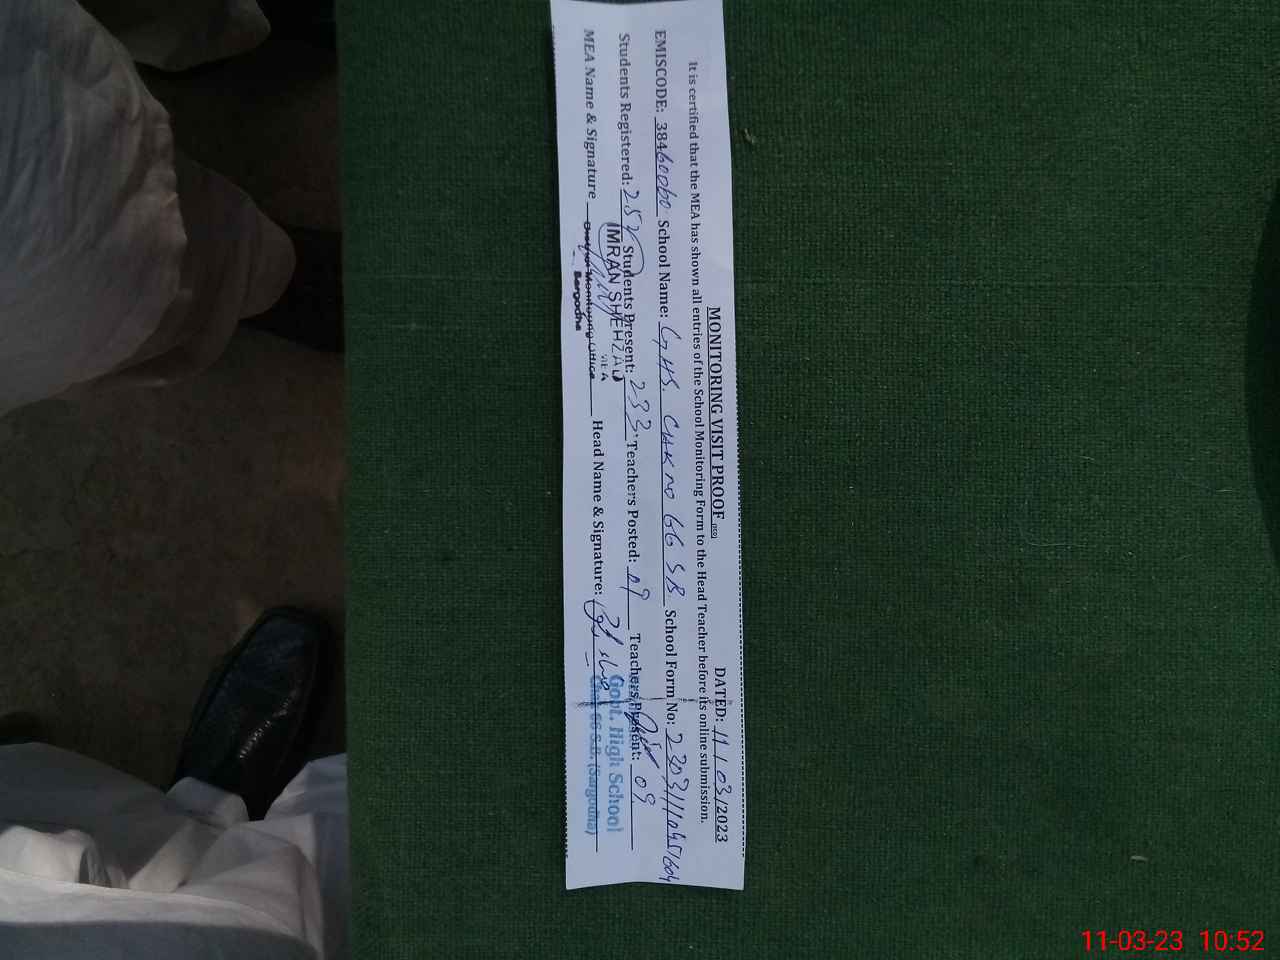 MONITORING VISIT PROOF DATED: 11/03/2023
It is certified that the MEA has shown all entries of the School Monitoring Form to the Head Teacher before its online submission.
EMISCODE: 38460060 School Name: GHS. CHAK NO 66 SB School Form No:
Students Registered: 252 Students Present: 233 Teachers Posted: 09 Teachers Present: 09
MEA Name & Signature Head Name & Signature:
IMRAN SHEHZAD
MEA
District Monitoring Office
Sargodha
Govt. High School
Chak 66 S.B. (Sargodha)
11-03-23 10:52